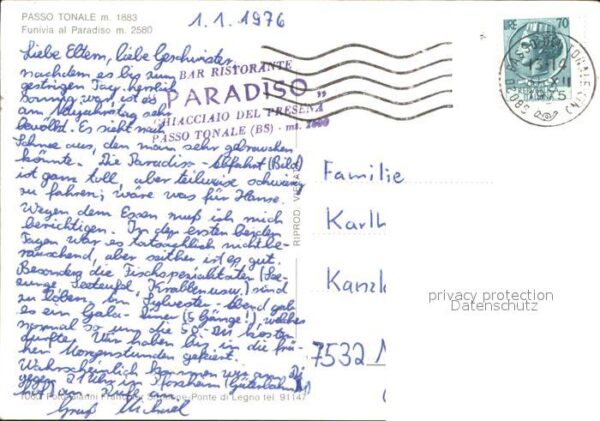 PASSO TONALE m. 1883
Funivia al Paradiso m. 2580
1.1.1976
Liebe Eltern, liebe Geschwister,
nachdem es bis zum
gestrigen Tag herrlich
sonnig war, ist es
am Neujahrstag sehr
bewölkt. Es sieht nach
Schnee aus, den man sehr gebrauchen
könnte. Die Paradiso-Abfahrt (Bild)
ist ganz toll, aber teilweise schwierig
zu fahren; wäre was für Hanse.
Wegen dem Essen muß ich mich
berichtigen. In den ersten beiden
Tagen war es tatsächlich nicht be-
rauschend, aber seither ist es gut.
Besonders die Fischspezialitäten (See-
zunge, Seeteufel, Krabben usw.) sind
zu loben. Am Sylvester-Abend gab
es ein Gala-Diner (5 Gänge!), welches
normal so um die 50.- DM kosten
dürfte. Wir haben bis in die frü-
hen Morgenstunden gefeiert.
Wahrscheinlich kommen wir am
gegen 21 Uhr in Pforzheim (Güterbahnhof)
an.
Gruß Michael
BAR RISTORANTE
PARADISO"
GHIACCIAIO DEL PRESENA
PASSO TONALE (BS) - mt.
LIRE 70
1975
Familie
Karlh
Kanzl
7532
RIPROD.
privacy protection
Datenschutz
Ponte di Legno tel. 91147